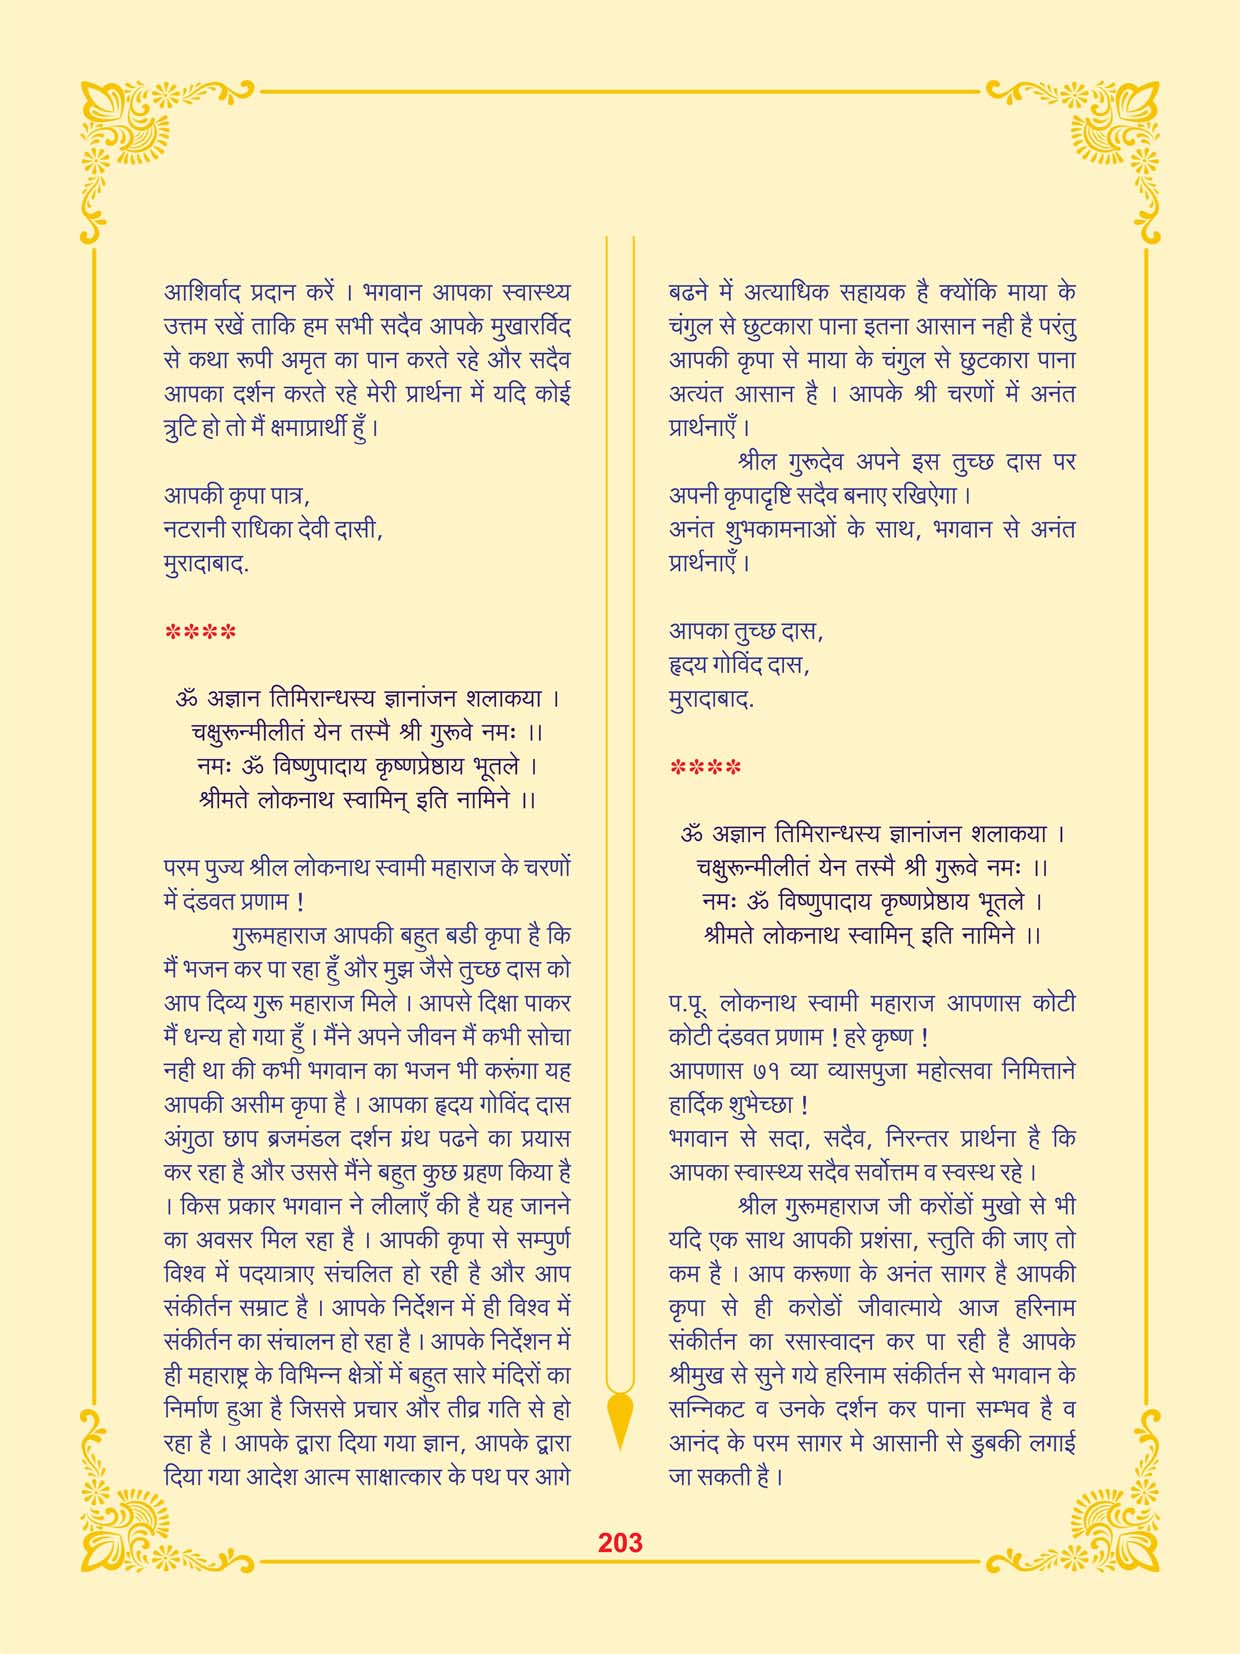 आशिर्वाद प्रदान करें । भगवान आपका स्वास्थ्य
उत्तम रखें ताकि हम सभी सदैव आपके मुखारर्विद
से कथा रूपी अमृत का पान करते रहे और सदैव
आपका दर्शन करते रहे मेरी प्रार्थना में यदि कोई
त्रुटि हो तो मैं क्षमाप्रार्थी हुँ ।
आपकी कृपा पात्र,
नटरानी राधिका देवी दासी,
मुरादाबाद.
****
ॐ अज्ञान तिमिरान्धस्य ज्ञानांजन शलाकया ।
चक्षुरून्मीलीतं येन तस्मै श्री गुरूवे नमः ।।
नमः ॐ विष्णुपादाय कृष्णप्रेष्ठाय भूतले ।
श्रीमते लोकनाथ स्वामिन् इति नामिने ।।
परम पुज्य श्रील लोकनाथ स्वामी महाराज के चरणों
में दंडवत प्रणाम !
गुरूमहाराज आपकी बहुत बडी कृपा है कि
मैं भजन कर पा रहा हुँ और मुझ जैसे तुच्छ दास को
आप दिव्य गुरू महाराज मिले । आपसे दिक्षा पाकर
मैं धन्य हो गया हुँ । मैंने अपने जीवन मैं कभी सोचा
नही था की कभी भगवान का भजन भी करूंगा यह
आपकी असीम कृपा है । आपका हृदय गोविंद दास
अंगुठा छाप ब्रजमंडल दर्शन ग्रंथ पढने का प्रयास
कर रहा है और उससे मैंने बहुत कुछ ग्रहण किया है
। किस प्रकार भगवान ने लीलाएँ की है यह जानने
का अवसर मिल रहा है । आपकी कृपा से सम्पुर्ण
विश्व में पदयात्राए संचलित हो रही है और आप
संकीर्तन सम्राट है । आपके निर्देशन में ही विश्व में
संकीर्तन का संचालन हो रहा है । आपके निर्देशन में
ही महाराष्ट्र के विभिन्न क्षेत्रों में बहुत सारे मंदिरों का
निर्माण हुआ है जिससे प्रचार और तीव्र गति से हो
रहा है । आपके द्वारा दिया गया ज्ञान, आपके द्वारा
दिया गया आदेश आत्म साक्षात्कार के पथ पर आगे
बढने में अत्याधिक सहायक है क्योंकि माया के
चंगुल से छुटकारा पाना इतना आसान नही है परंतु
आपकी कृपा से माया के चंगुल से छुटकारा पाना
अत्यंत आसान है । आपके श्री चरणों में अनंत
प्रार्थनाएँ ।
श्रील गुरूदेव अपने इस तुच्छ दास पर
अपनी कृपादृष्टि सदैव बनाए रखिऐगा ।
अनंत शुभकामनाओं के साथ, भगवान से अनंत
प्रार्थनाएँ ।
आपका तुच्छ दास,
हृदय गोविंद दास,
मुरादाबाद.
****
ॐ अज्ञान तिमिरान्धस्य ज्ञानांजन शलाकया ।
चक्षुरून्मीलीतं येन तस्मै श्री गुरूवे नमः ।।
नमः ॐ विष्णुपादाय कृष्णप्रेष्ठाय भूतले ।
श्रीमते लोकनाथ स्वामिन् इति नामिने ।।
प.पू. लोकनाथ स्वामी महाराज आपणास कोटी
कोटी दंडवत प्रणाम ! हरे कृष्ण !
आपणास ७१ व्या व्यासपुजा महोत्सवा निमित्ताने
हार्दिक शुभेच्छा !
भगवान से सदा, सदैव, निरन्तर प्रार्थना है कि
आपका स्वास्थ्य सदैव सर्वोत्तम व स्वस्थ रहे ।
श्रील गुरूमहाराज जी करोंडों मुखो से भी
यदि एक साथ आपकी प्रशंसा, स्तुति की जाए तो
कम है । आप करूणा के अनंत सागर है आपकी
कृपा से ही करोडों जीवात्माये आज हरिनाम
संकीर्तन का रसास्वादन कर पा रही है आपके
श्रीमुख से सुने गये हरिनाम संकीर्तन से भगवान के
सन्निकट व उनके दर्शन कर पाना सम्भव है व
आनंद के परम सागर मे आसानी से डुबकी लगाई
जा सकती है ।
203